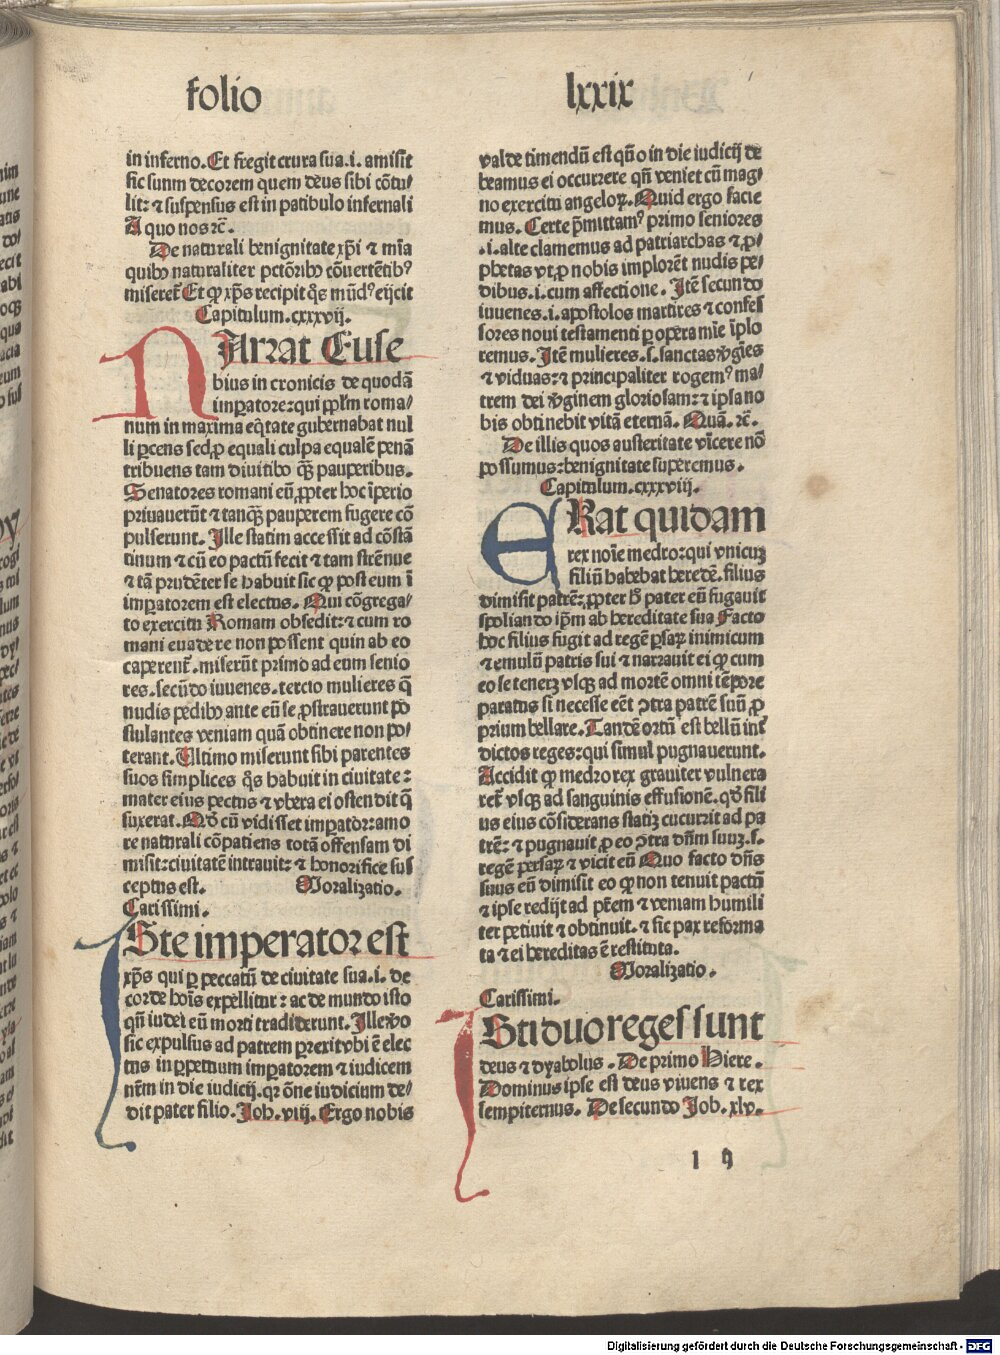 folio lxxix
in inferno. Et fregit crura sua .i. amisit
sic suum decorem quem deus sibi cõtu-
lit: ⁊ suspensus est in patibulo infernali
A quo nos ⁊c̄.
De naturali benignitate xp̄i ⁊ mīa
quibꝰ naturaliter pctōribꝰ cõuertētibꝰ
miseretᷣ Et ꝙ xp̄s recipit q̄s mūdꝰ eijcit
Capitulum .cxxxvij.
NArrat Euse
bius in cronicis de quodã
imꝑatore: qui pp̄lm roma-
num in maxima eq̄tate gubernabat nul
li ꝑcens sed ꝓ equali culpa equalē penã
tribuens tam diuitibꝰ q̄ꝫ pauperibus.
Senatores romani eũ ꝓpter hoc īperio
priuauerũt ⁊ tanq̄ꝫ pauperem fugere cō
pulserunt. Ille statim accessit ad cōstã
tinum ⁊ cũ eo pactũ fecit ⁊ tam strēnue
⁊ tã prudēter se habuit sic ꝙ post eum ī
imꝑatorem est electus. Qui cōgrega-
to exercitu Romam obsedit: ⁊ cum ro
mani euadere non possent quin ab eo
caperentᷣ. miserũt primo ad eum senio
res. secũdo iuuenes. tercio mulieres q̄
nudis pedibꝰ ante eũ se ꝓstrauerunt po
stulantes veniam quã obtinere non po-
terant. Ultimo miserunt sibi parentes
suos simplices q̄s habuit in ciuitate:
mater eius pectus ⁊ vbera ei ostendit q̄
suxerat. Qd̄ cũ vidisset imꝑator: amo
re naturali cōpatiens totã offensam di
misit: ciuitatē intrauit: ⁊ honorifice sus
ceptus est. Moralizatio.
Carissimi.
ISte imperator est
xp̄s qui ꝑ peccatũ de ciuitate sua .i. de
corde hoīs expellitur: ac de mundo isto
qñ iudei eũ morti tradiderunt. Ille v̄o
sic expulsus ad patrem ꝑrexit vbi ē elec
tus in ꝑpetuum imꝑatorem ⁊ iudicem
nr̄m in die iudicij. qꝛ ōne iudicium de-
dit pater filio. Joh. viij. Ergo nobis
valde timendũ est qũo in die iudicij de
beamus ei occurrere qñ veniet cũ mag-
no exercitu angeloꝝ. Quid ergo facie
mus. Certe p̄mittamꝰ primo seniores
.i. alte clamemus ad patriarchas ⁊ ꝓ-
phetas vt ꝓ nobis implorēt nudis pe-
dibus .i. cum affectione. Itē secundo
iuuenes .i. apostolos martires ⁊ confes
sores noui testamenti ꝑ opera mīe īplo
remus. Itē mulieres .s. sanctas v̄gīes
⁊ viduas: ⁊ principaliter rogemꝰ ma-
trem dei v̄ginem gloriosam: ⁊ ipsa no
bis obtinebit vitã eternã. Quã. ⁊c̄.
De illis quos austeritate vīcere nō
possumus: benignitate superemus.
Capitulum .cxxxviij.
ERat quidam
rex noīe medro: qui vnicuꝫ
filiũ habebat heredē. filius
dimisit patrē: ꝓpter hͦ pater eũ fugauit
spoliando ip̄m ab hereditate sua Facto
hoc filius fugit ad regē ꝑsaꝝ inimicum
⁊ emulũ patris sui ⁊ narrauit ei ꝙ cum
eo se teneret vsqꝫ ad mortē omni tēpore
paratus si necesse eēt ꝯtra patrē suũ ꝓ
prium bellare. Tandē ortũ est bellũ intᷣ
dictos reges: qui simul pugnauerunt.
Accidit ꝙ medro rex grauiter vulnera
retᷣ vsqꝫ ad sanguinis effusionē. qd̄ fili
us eius cōsiderans statiꝫ cucurrit ad pa
trē: ⁊ pugnauit ꝓ eo ꝯtra dñm suuꝫ .s.
regē persaꝝ ⁊ vicit eũ Quo facto dñs
suus eũ dimisit eo ꝙ non tenuit pactũ
⁊ ipse redijt ad pr̄em ⁊ veniam humili
ter petiuit ⁊ obtinuit. ⁊ sic pax reforma
ta ⁊ ei hereditas ē restituta.
Moralizatio.
Carissimi.
ISti duo reges sunt
deus ⁊ dyabolus. De primo Hiere.
Dominus ipse est deus viuens ⁊ rex
sempiternus. De secundo Job. xlv.
l 9
Digitalisierung gefördert durch die Deutsche Forschungsgemeinschaft - DFG